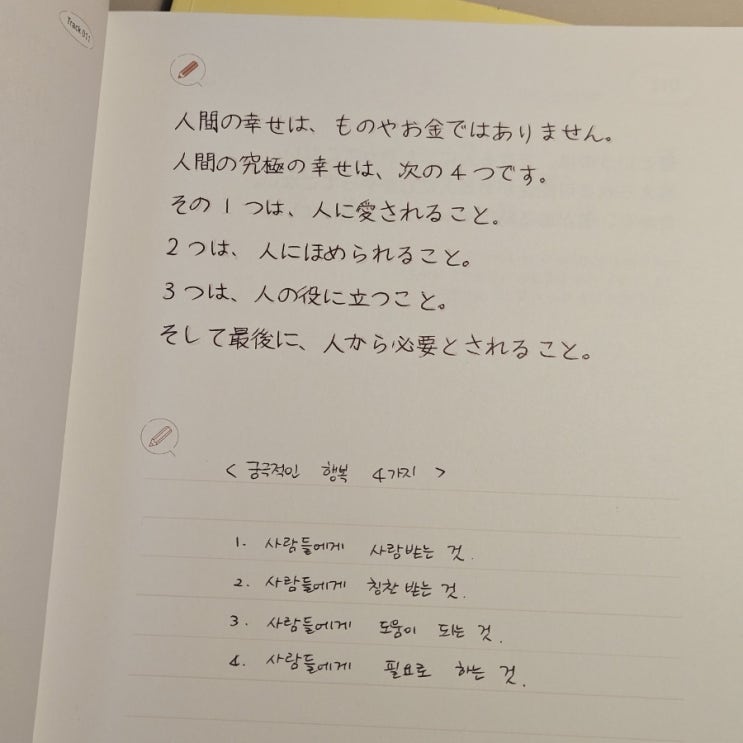 Track 011
人間の幸せは、ものやお金ではありません。
人間の究極の幸せは、次の4つです。
その1つは、人に愛されること。
2つは、人にほめられること。
3つは、人の役に立つこと。
そして最後に、人から必要とされること。
< 궁극적인 행복 4가지 >
1. 사람들에게 사람받는 것.
2. 사람들에게 칭찬 받는 것.
3. 사람들에게 도움이 되는 것.
4. 사람들에게 필요로 하는 것.